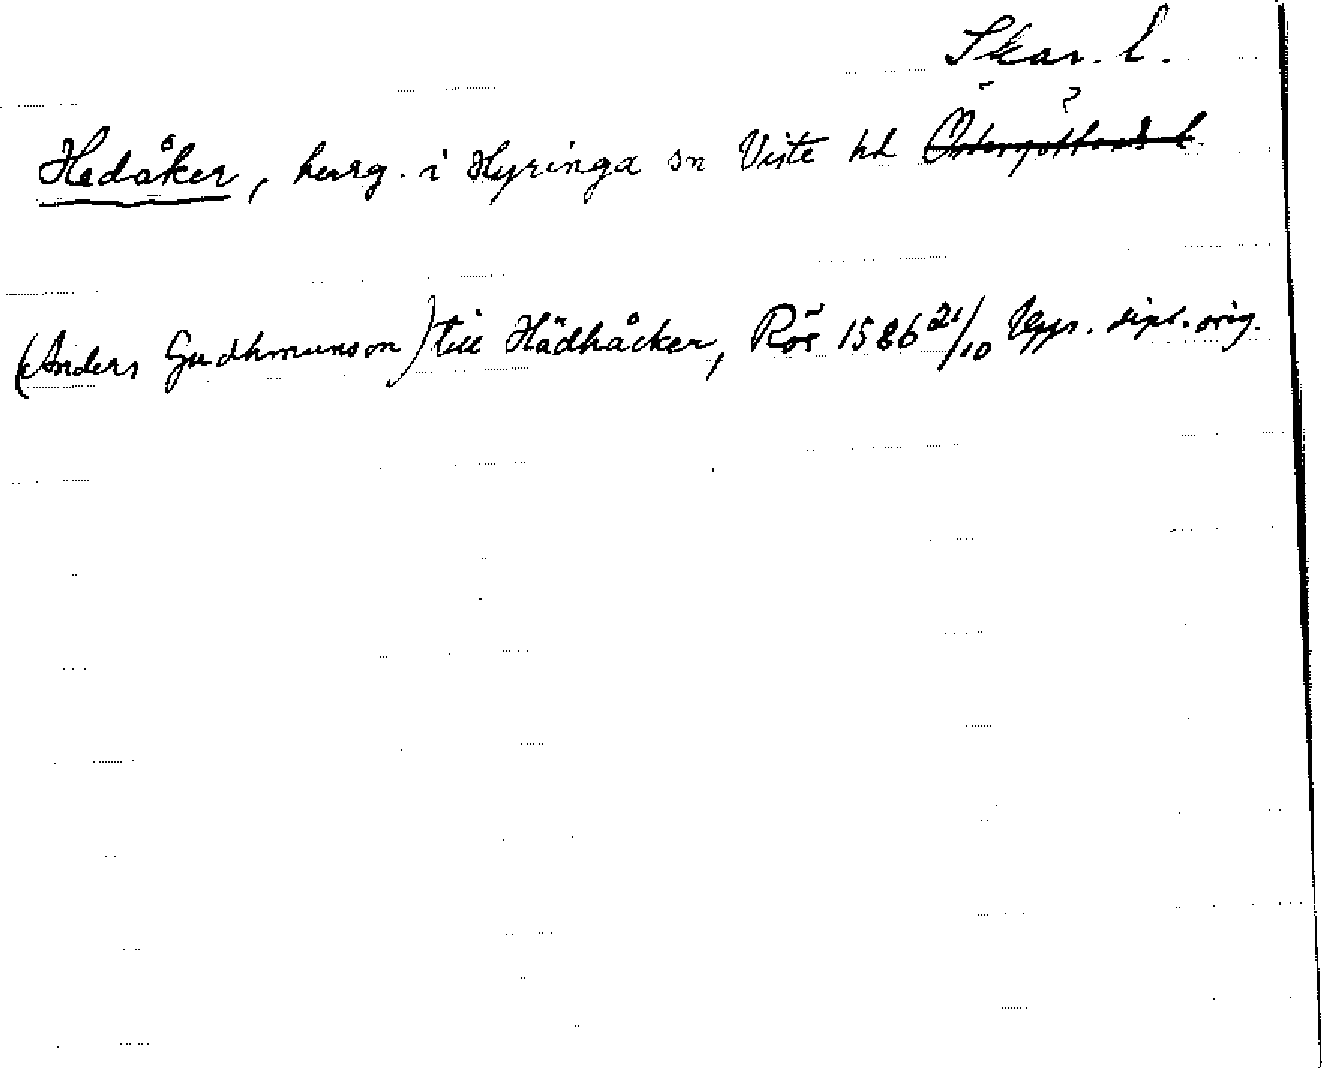 Skar. l.
Hedåker, herrg. i Hyringa sn Viste hd Östergötlands l.
(Anders Gudhmunson) till Hädhåcker, Rös 1586 21/10 Upps. dipl. orig.